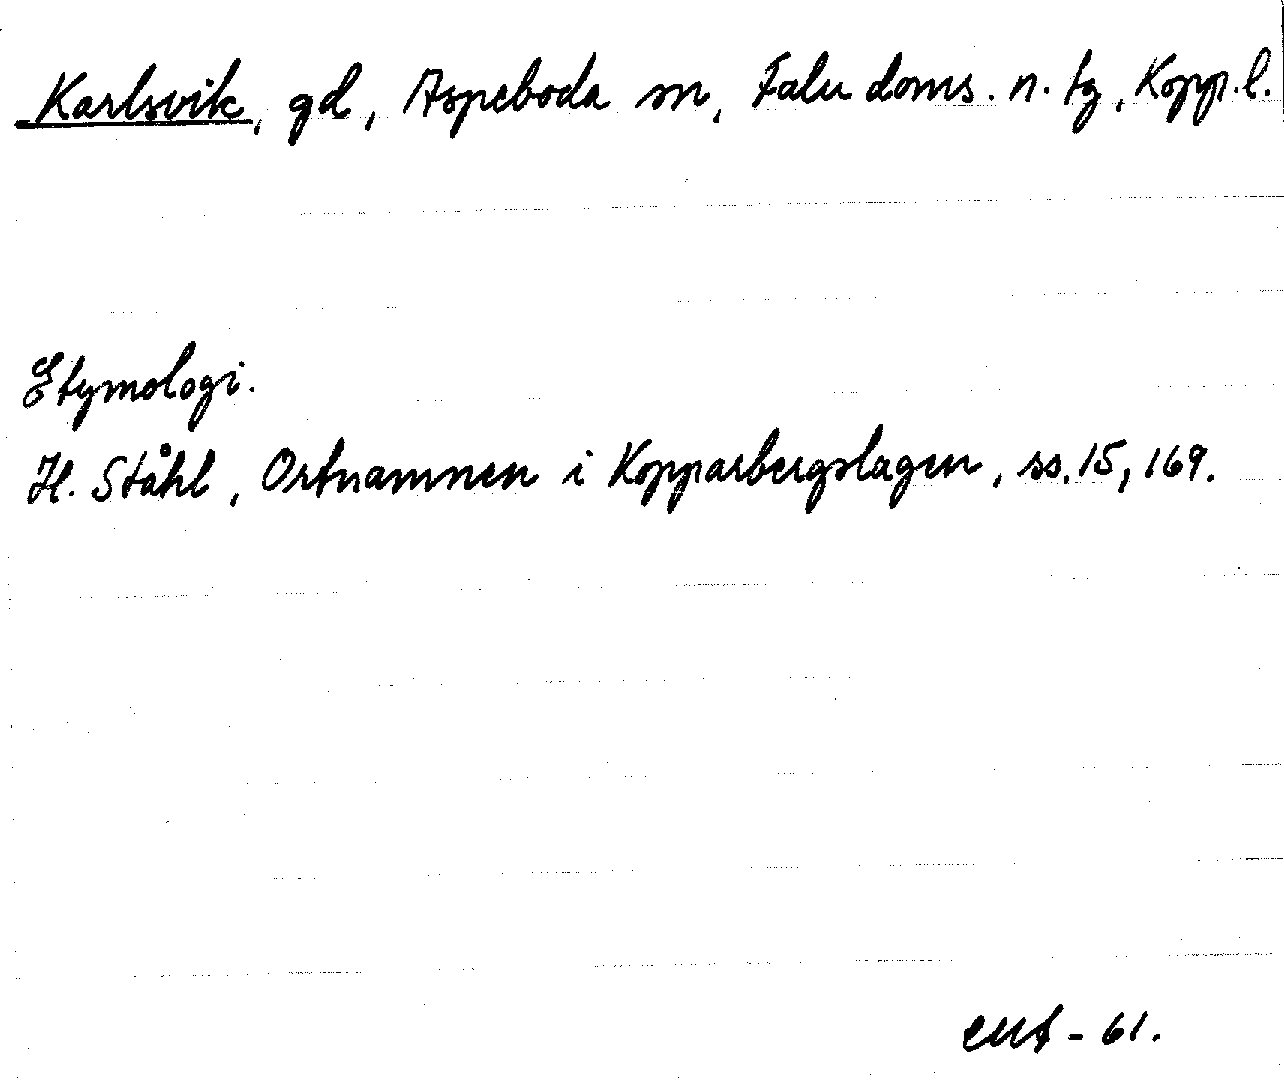 Karlsvik, gd, Aspeboda sn, Falu doms. n. tg, Kopp. l.
Etymologi.
H. Ståhl, Ortnamnen i Kopparbergslagen, ss. 15, 169.
- 61.